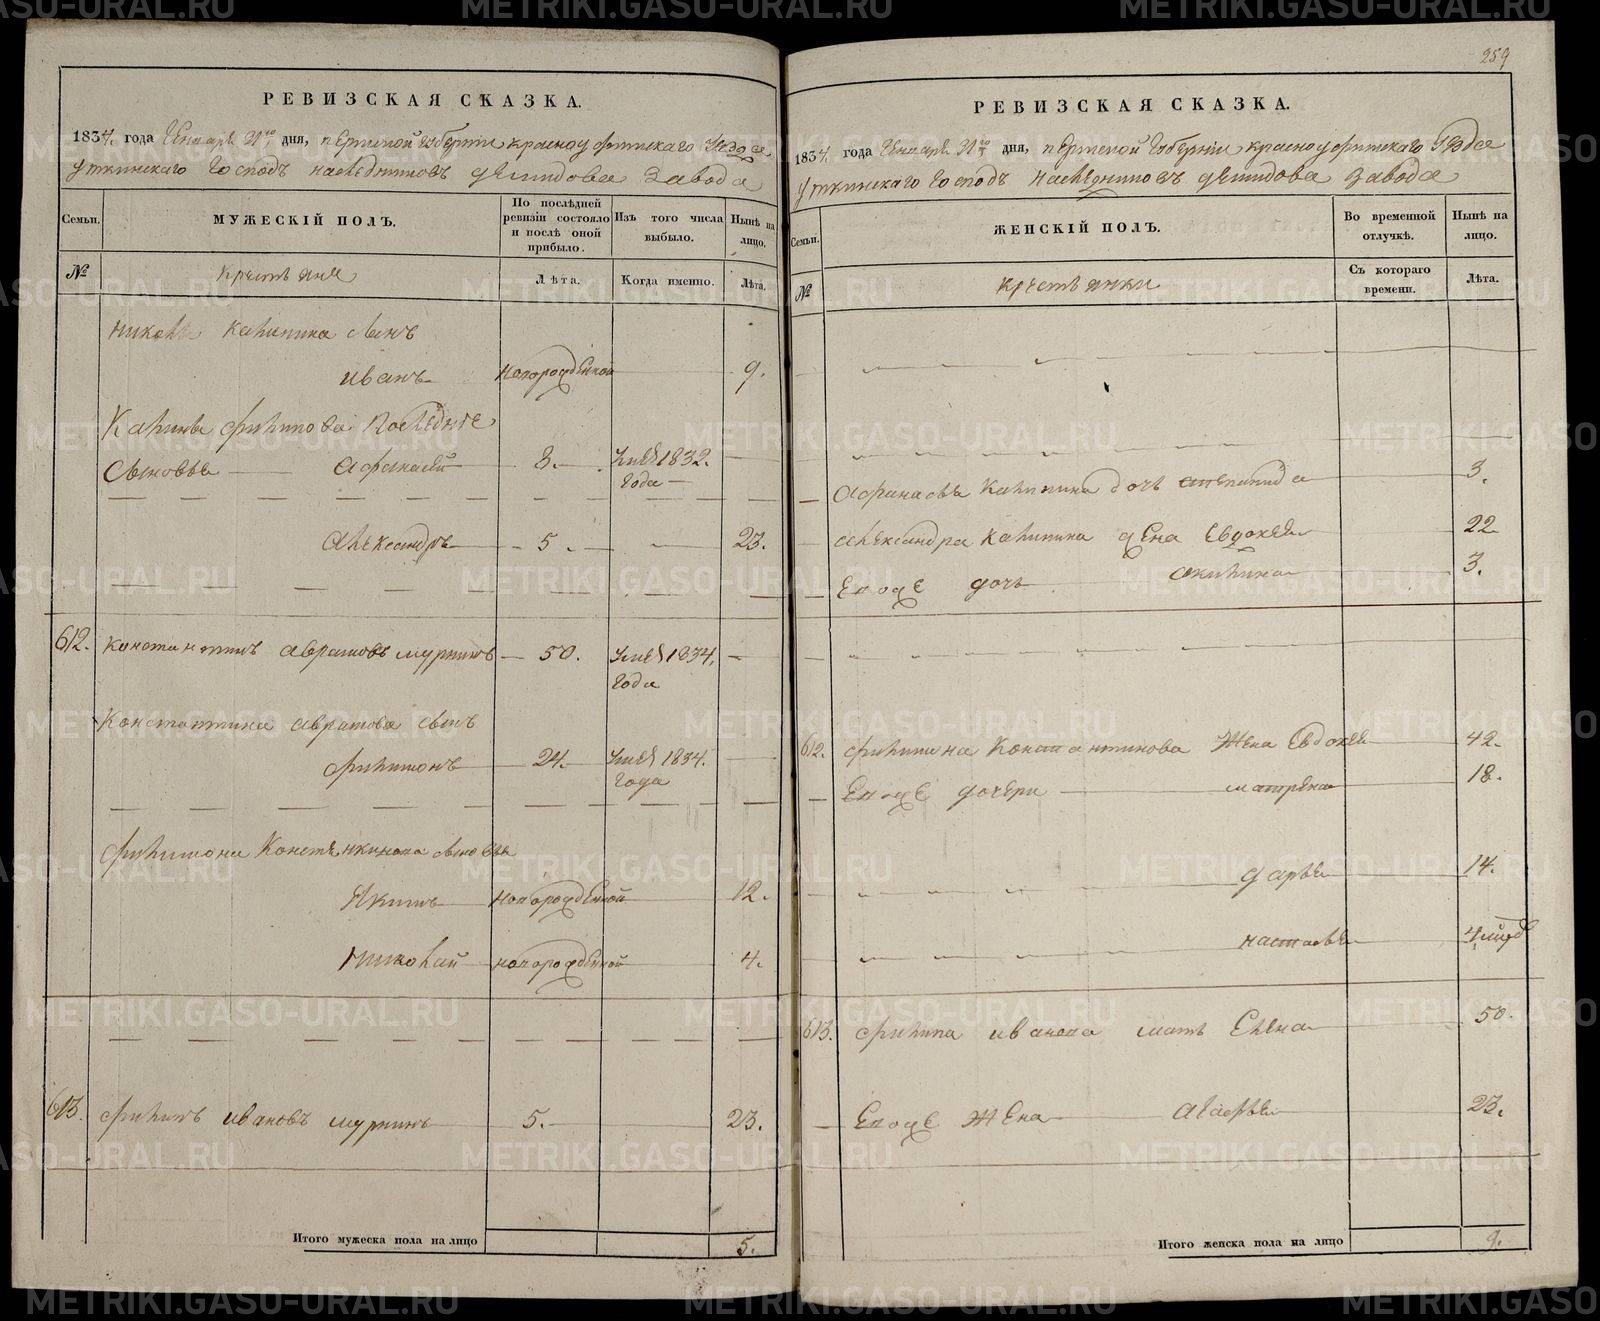 РЕВИЗСКАЯ СКАЗКА.
1834. года Генваря 31го дня, пермской губернии красноуфимскаго уезда
уткинскаго господъ наследниковъ демидова завода
Семьи.
МУЖЕСКІЙ ПОЛЪ.
По послѣдней ревизіи состояло и послѣ оной прибыло.
Изъ того числа выбыло.
Нынѣ на лицо.
№
крестьяня
Лѣта.
Когда именно.
Лѣта.
калинина сынъ
иванъ новорожденной 9.
филипова последніе
сыновья афанасей 8. 1832. года
александръ 5. 23.
612. константинъ аврамовъ мурзинъ 50. 1834. года
константина аврамова сынъ
филимонъ 24. 1834. года
филимона сыновья
Якимъ новорожденной 12.
Николай новорожденной 4.
613. филипъ ивановъ мурзинъ 5. 23.
Итого мужеска пола на лицо 5.
259
РЕВИЗСКАЯ СКАЗКА.
1834. года Генваря 31го дня, пермской губерніи красноуфимскаго уезда
уткинскаго господъ наследниковъ демидова завода
Семьи.
ЖЕНСКІЙ ПОЛЪ.
Во временной отлучкѣ.
Нынѣ на лицо.
№
крестьянки
Съ котораго времени.
Лѣта.
афанасья калинина дочь степанида 3.
александра калинина жена Евдокея 22
Егоже дочь акилина 3.
612. филимона Константинова жена Евдокея 42.
Егоже дочери матрена 18.
дарья 14.
настасья
613. филипа иванова мать Елена 50.
Егоже жена агафья 23.
Итого женска пола на лицо 9.
METRIKI.GASO-URAL.RU